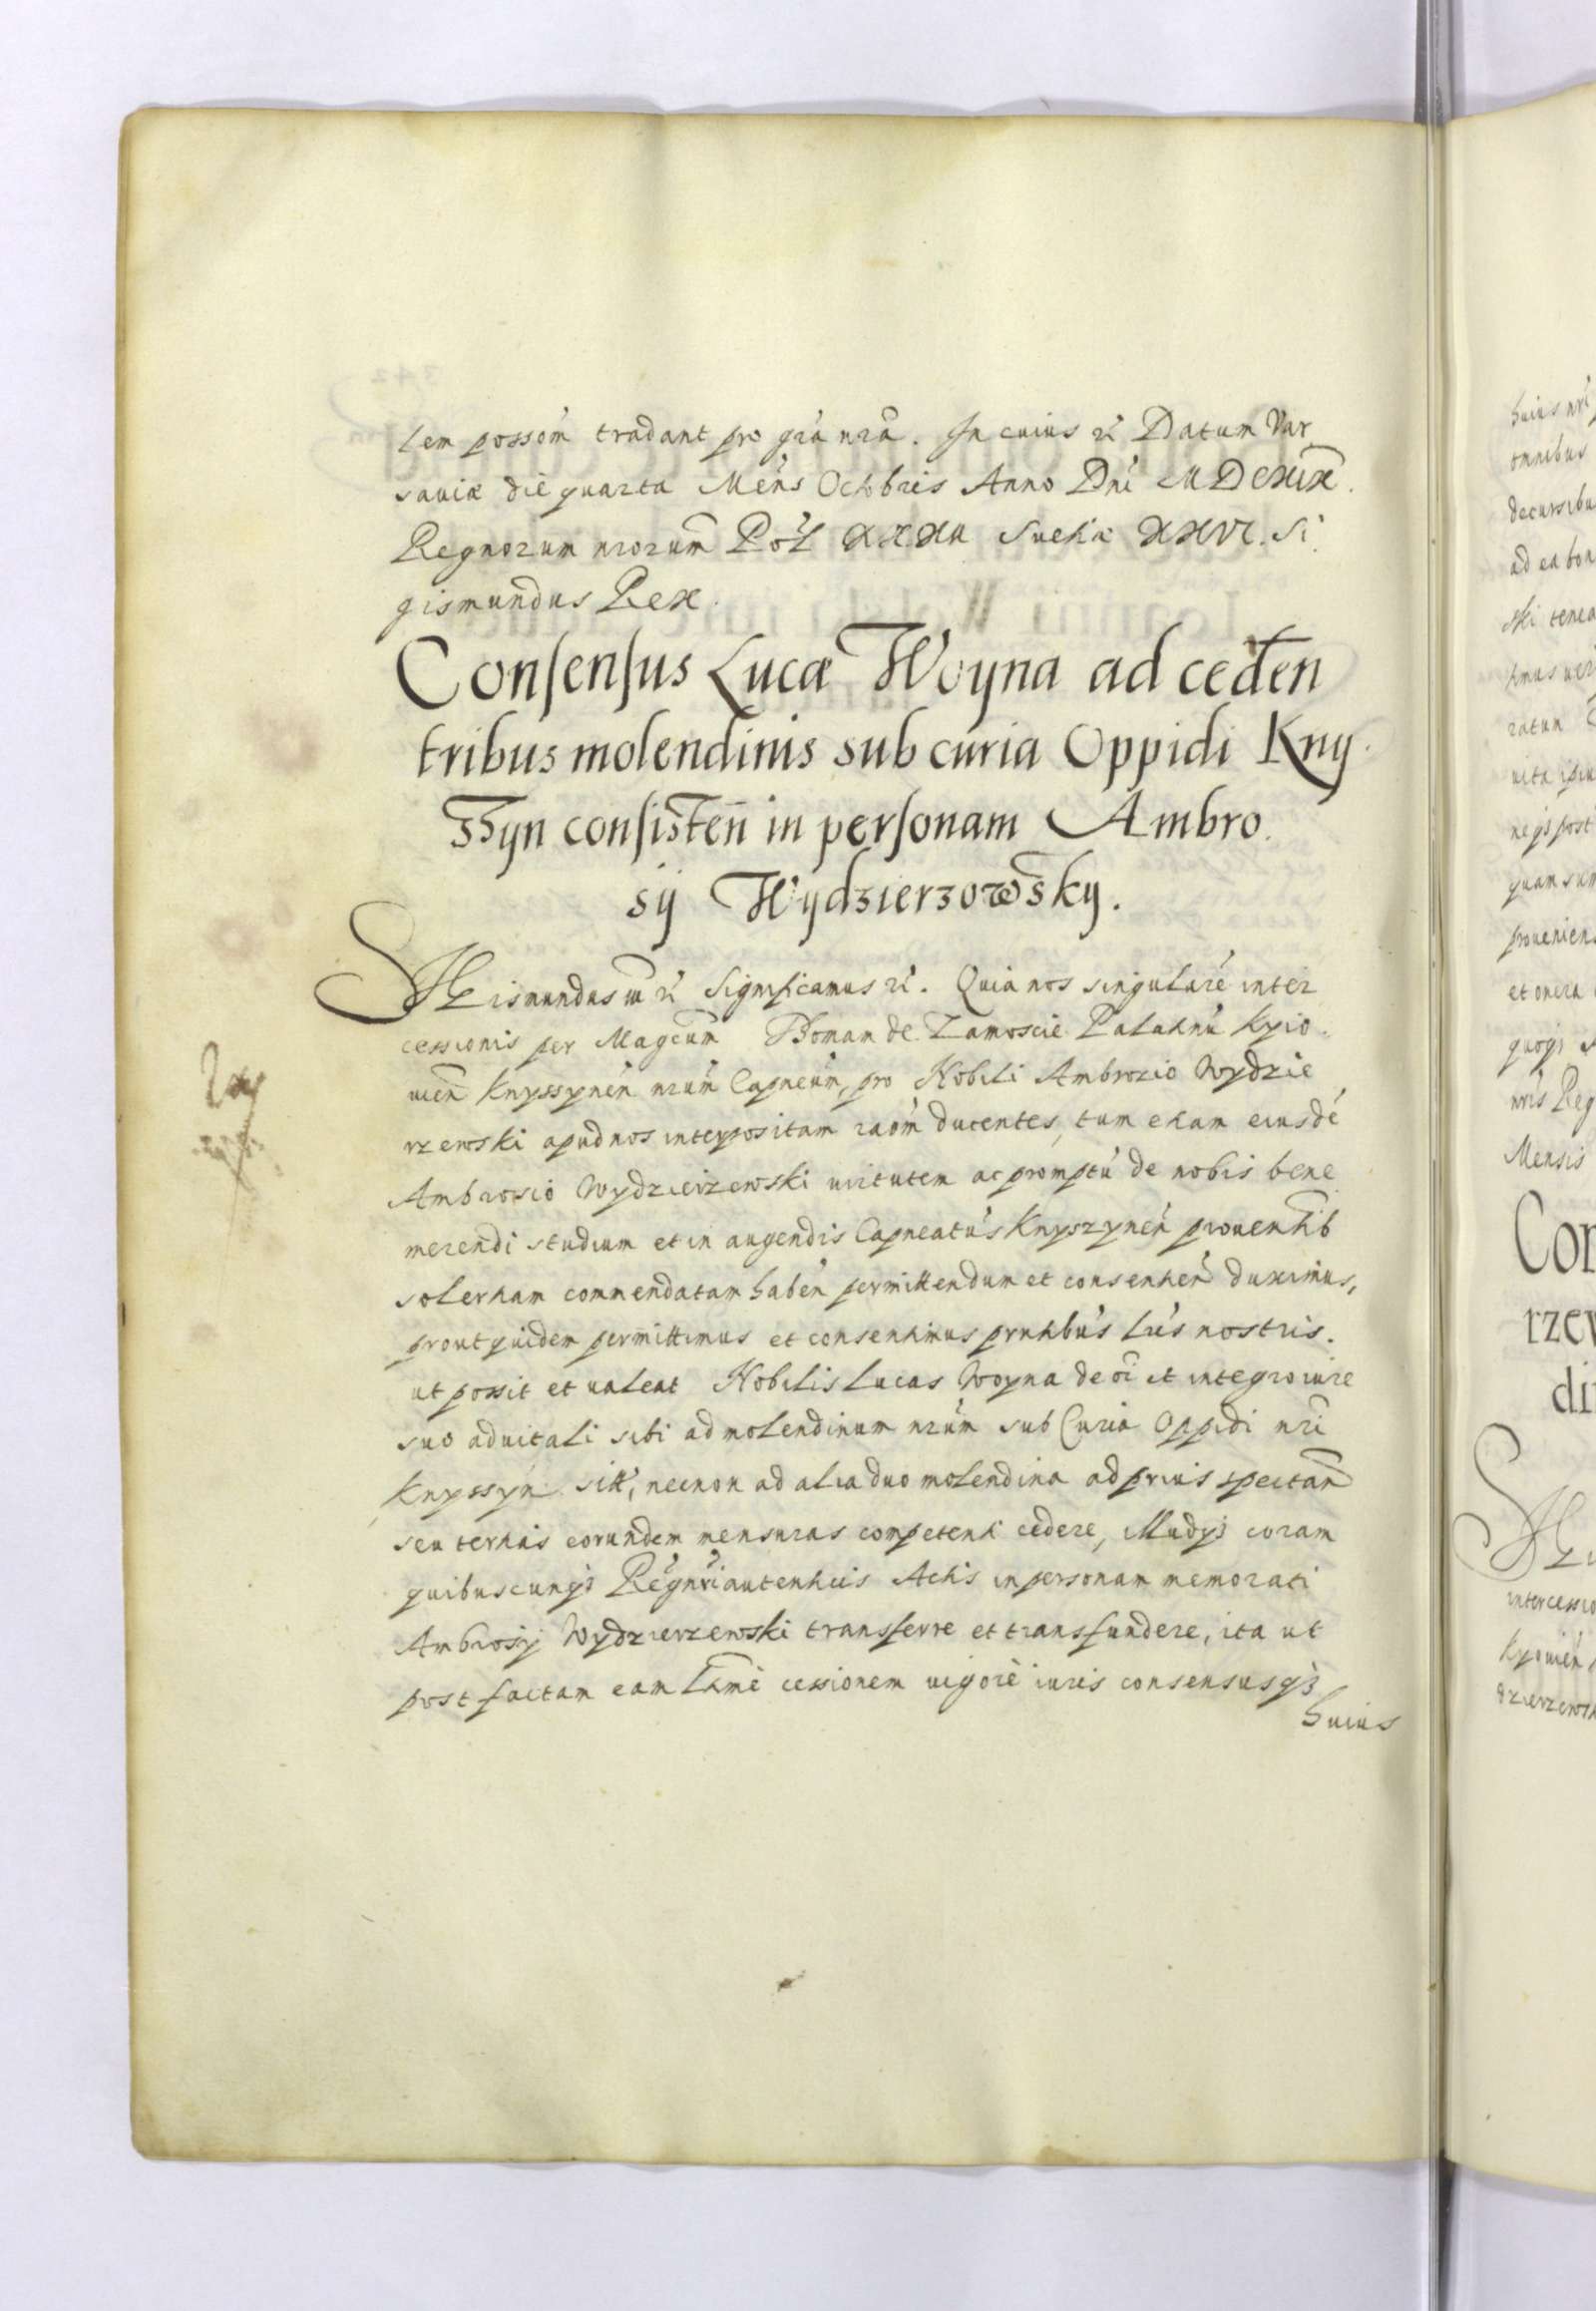 lem possom̃ tradant pro gr̃a nr̃a. In cuius rei Datum Var
sauiæ die quarta Mens̃ Octobris Anno Dnĩ MDCXIX.
Regnorum nrorum̃ Pol̃ XXXII Suetiæ XXVI. Si
gismundus Rex.
Consensus Lucæ Woyna ad ceden̄
tribus molendinis sub curia Oppidi Kny
sszyn consisten̄ in personam Ambro
sij Wydzierzowsky.
Sigismundus III rẽ Significamus rẽ. Quia nos singularẽ inter
cessionis per Magcum̃ Thomam de Zamoscie Palatinũ Kyio
uien̄ Knyssynen̄ nrũm Capneũm, pro Nobili Ambrozio Wydzie
rzewski apud nos interpositam raõm ducentes, tum etiam eiusdẽ
Ambrosio Wydzierzewski uirtutem ac promptũ de nobis bene
merendi studium et in augendis Capneatũs Knyszynen̄ prouentib
solertiam commendatam haben̄ permittendum et consentien̄ duximus,
prout quidem permittimus et consentimus prntibũs Lrĩs nostris.
ut possit et ualeat Nobilis Lucas Woyna de oĩ et integro iure
suo aduitali sibi ad molendinum nrũm sub Curia Oppidi nrĩ
Knyssyn sitt̃, necnon ad alia duo molendina ad prius spectan̄
seu tertias eorundem mensuras competenti cedere, illudq3 coram
quibuscunq3 Regñ nrĩ autenticis Actis in personam memorati
Ambrosij Wydzierzewski transferre et transfundere, ita ut
post factam eam ltimẽ cessionem uigorẽ iuris consensusq3
huius